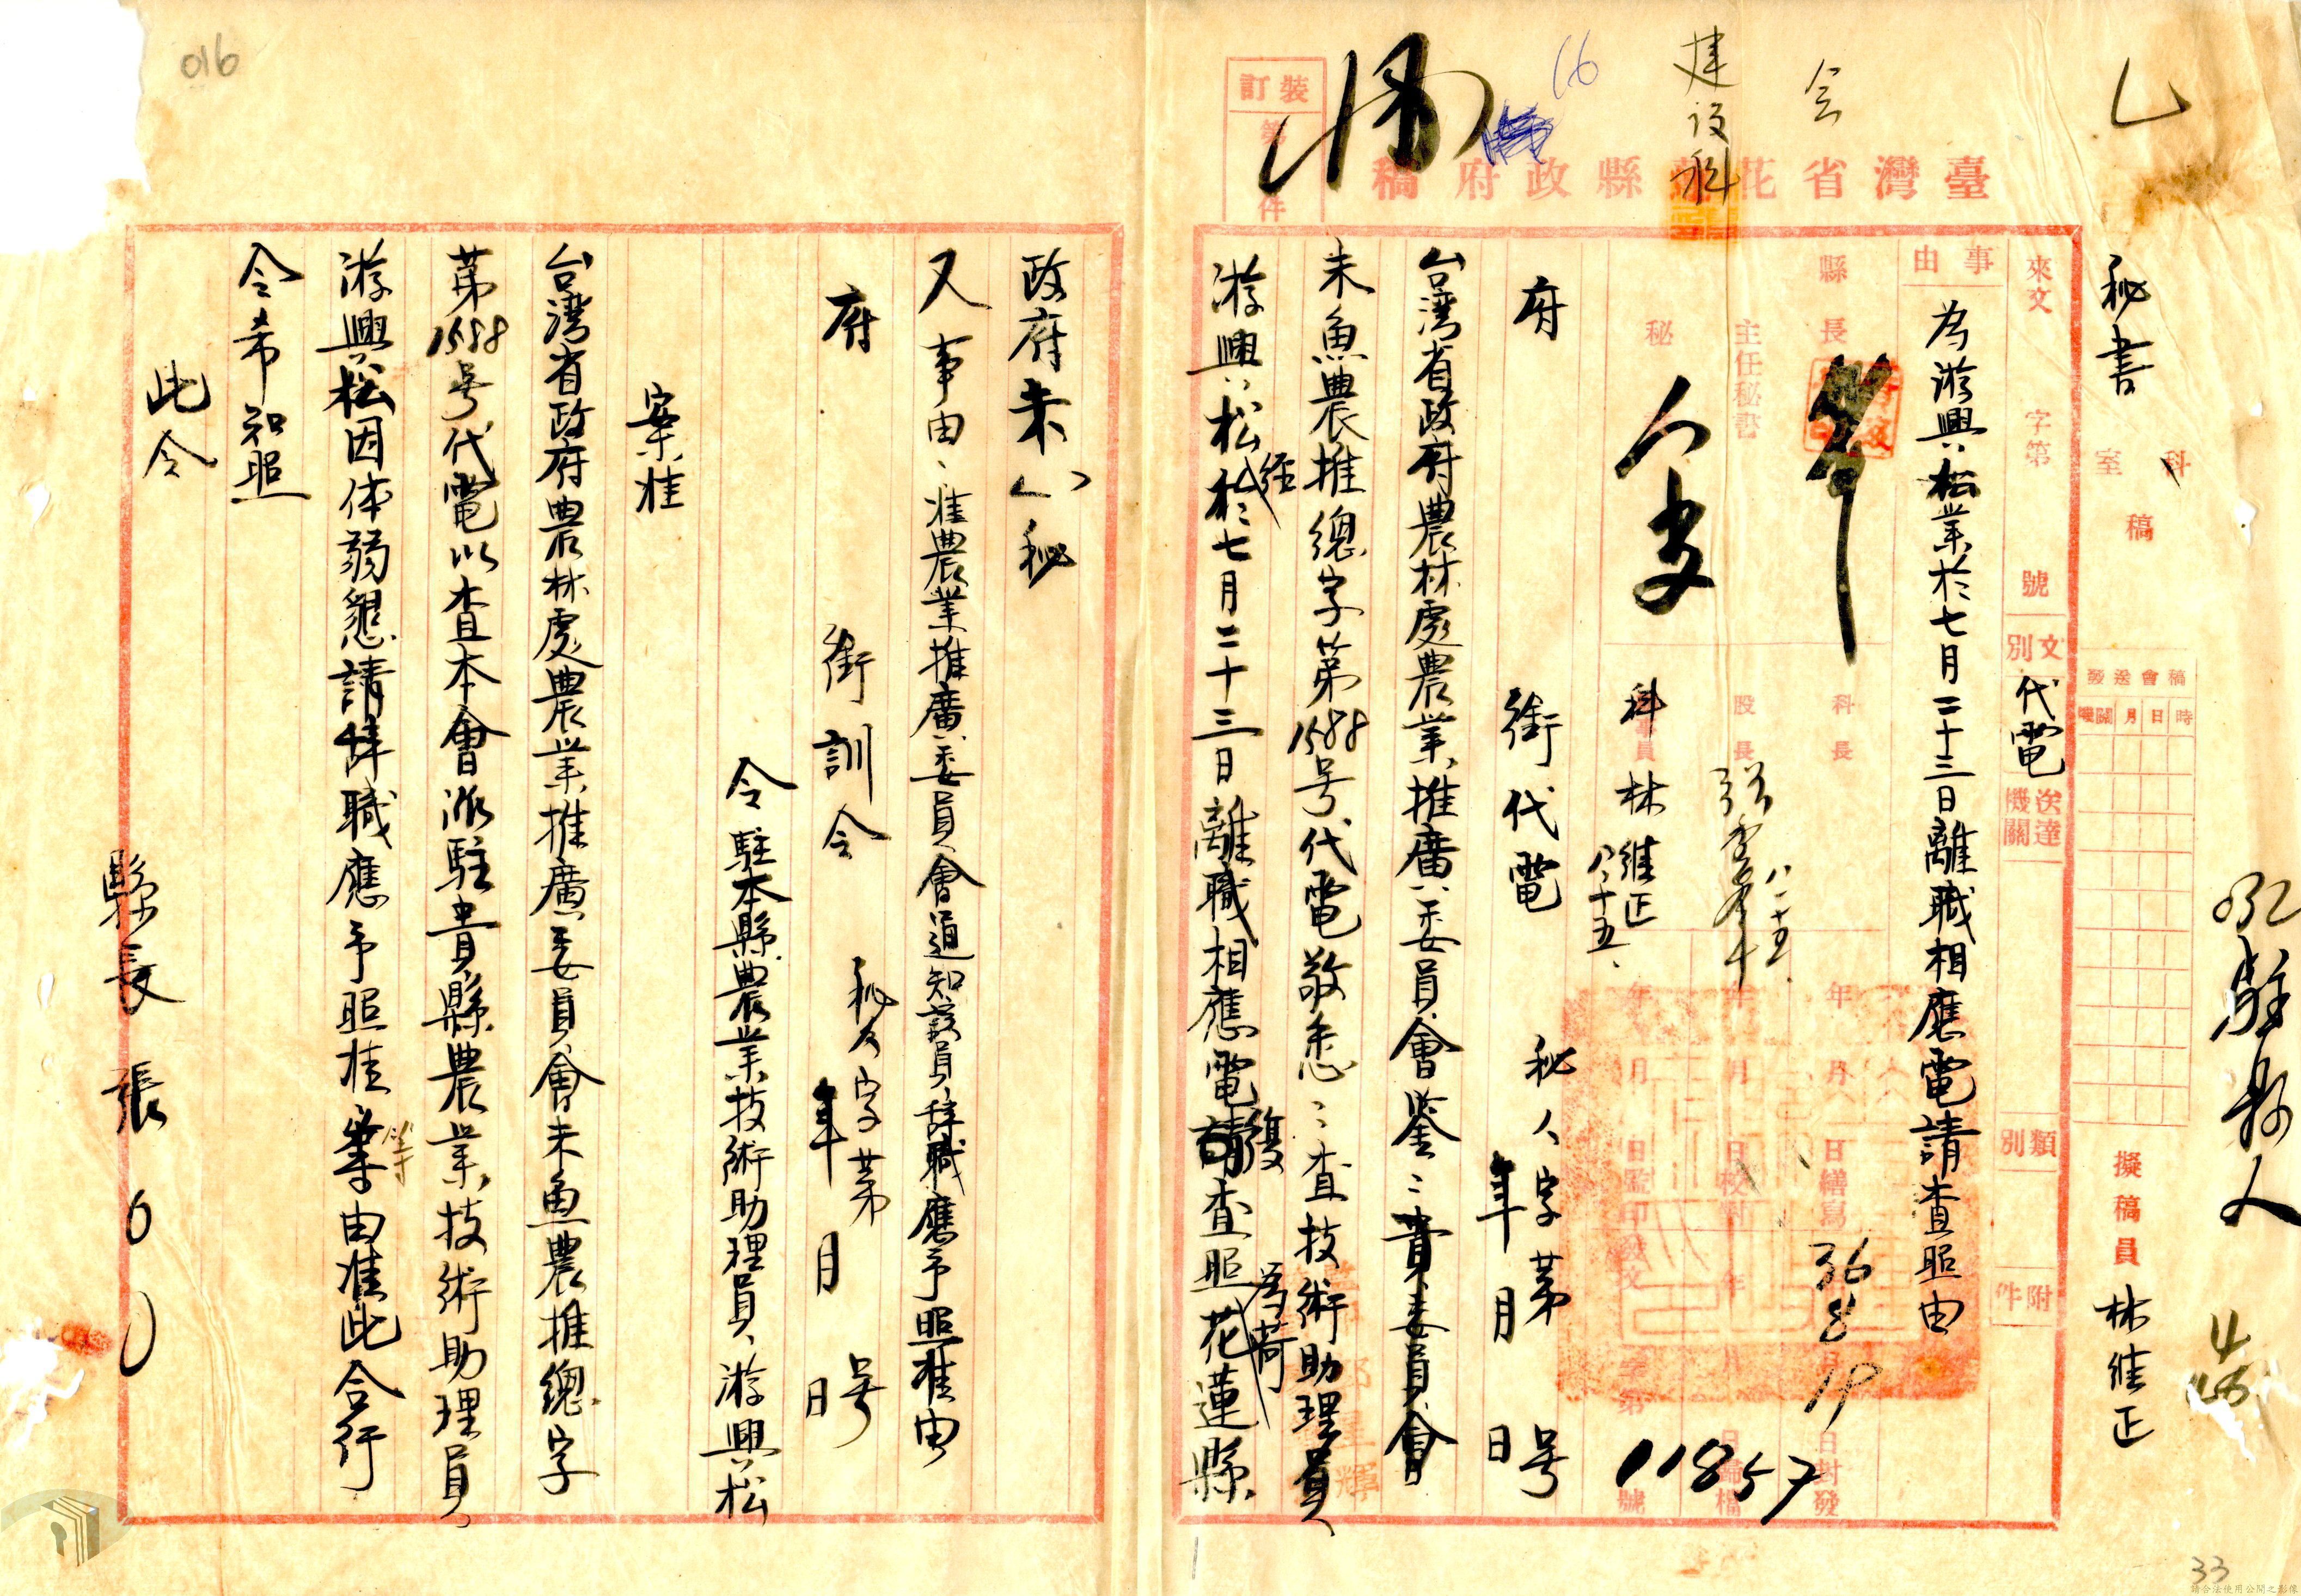 016
16
乙
会
建設科
訂裝
第
件
臺灣省花蓮縣政府稿
秘書
科
室
稿
擬稿員
林維正
33
發送會稿
機關
月
日
時
來文
字第
號
文別
代電
送達機關
類別
附件
事由
為游興松業於七月二十三日離職相應電請查照由
縣長
主任秘書
秘
科長
股長
科員
林維正
八、十五、
八、十五、
年
月
日繕寫
年
月
日校對
年
月
日監印
日封發
日歸檔
字第
號
36
8
19
11857
府
銜代電
秘人字第
号
年
月
日
台灣省政府農林處農業推廣委員會鑒：貴委員會
未魚農推總字第1588号代電敬悉：查技術助理員
游興松經於七月二十三日離職相應電復查照為荷花蓮縣
政府未八秘
又事由、准農業推廣委員會通知該員辞職應予照准由
府
銜訓令
秘人字第
号
年
月
日
令駐本縣農業技術助理員、游興松
案准
台灣省政府農林處農業推廣委員會未魚農推總字
第1588号代電以查本會派駐貴縣農業技術助理員、
游興松因体弱懇請辞職應予照准等由准此合行
令希知照
此令
縣長張〇〇
請合法使用公開之影像